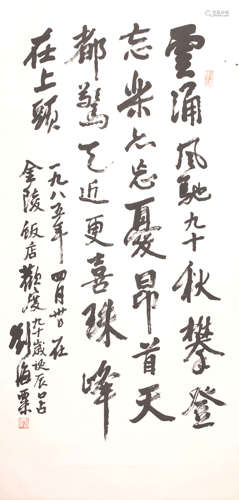 雲涌風馳九十秋攀登
忘樂亦忘憂昂首天
都驚天近更喜珠峰
在上頭
一九八五年四月卅日在
金陵飯店歡度九十歲誕辰口占
劉海粟